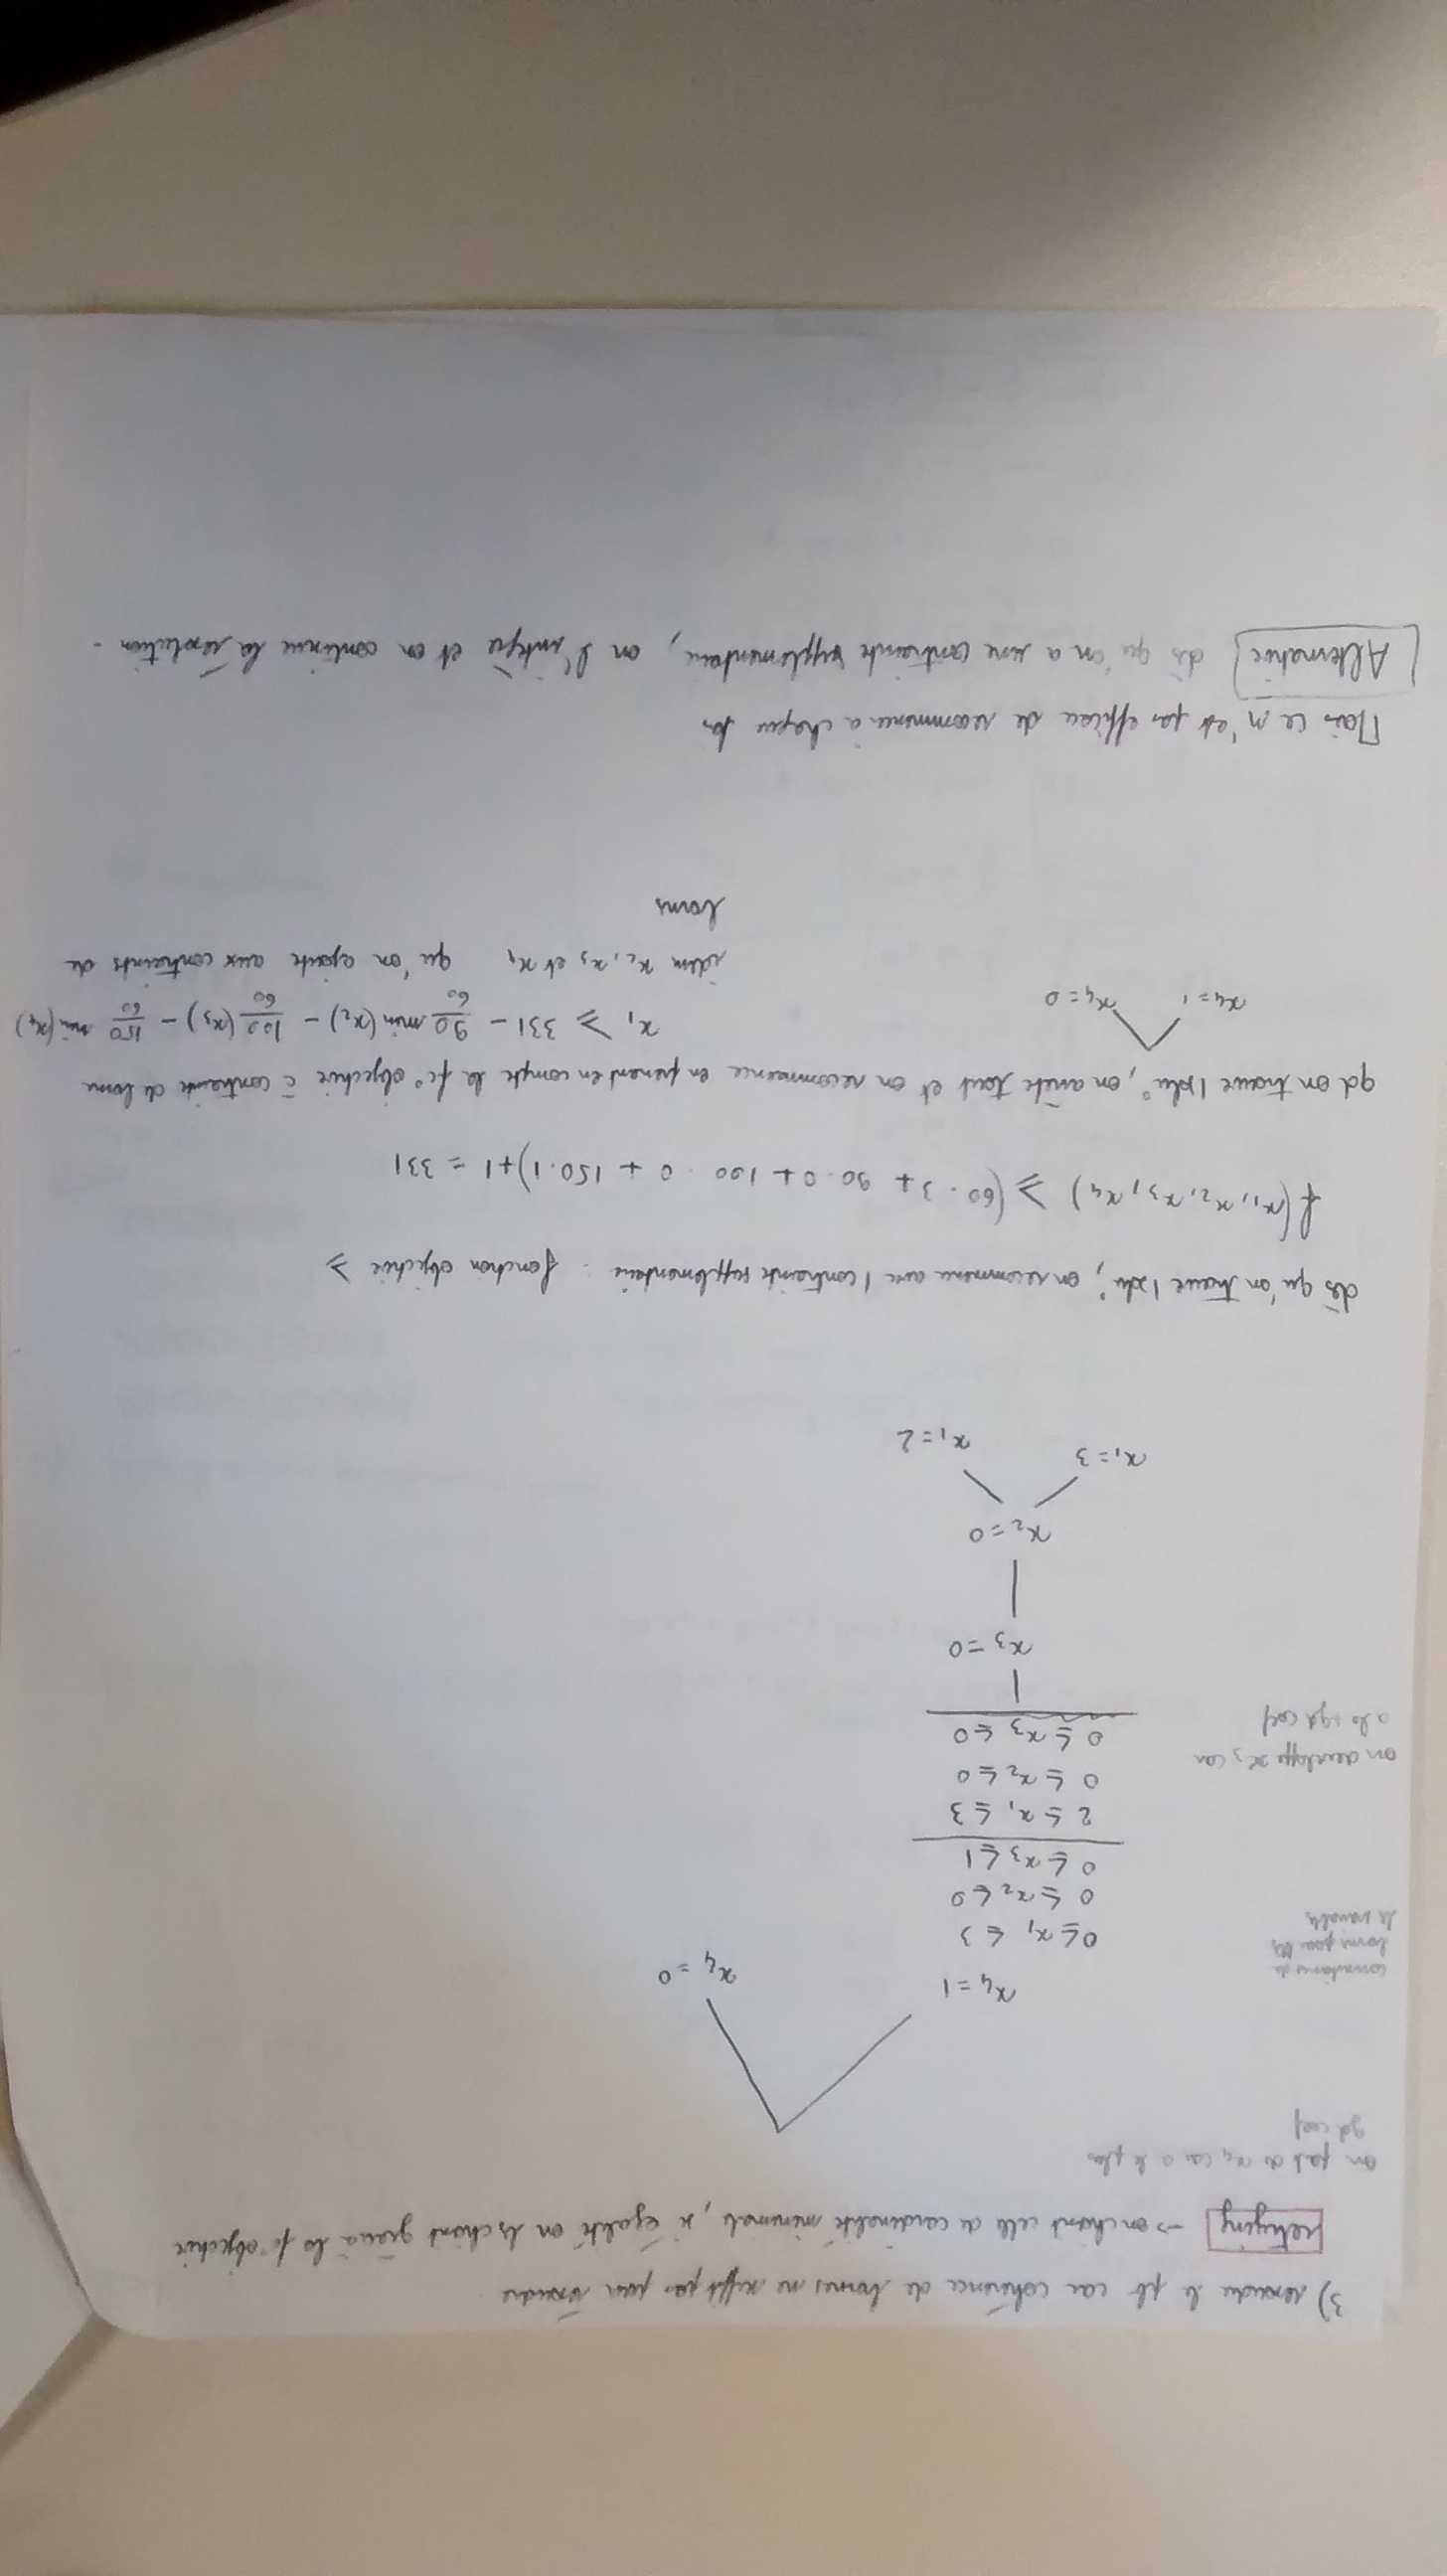 3) resoudre le pb car cohérence de bornes ne suffit pas pour résoudre
labeling → on choisit celle de cardinalité minimale, si égalité on les choisit grâce à la fc° objective
on part de x₄ car a le plus
gd coef
x₄ = 1
x₄ = 0
contraintes de
bornes pour les
variables
0 ≤ x₁ ≤ 3
0 ≤ x₂ ≤ 0
0 ≤ x₃ ≤ 1
2 ≤ x₁ ≤ 3
0 ≤ x₂ ≤ 0
0 ≤ x₃ ≤ 0
on developpe x₃ car
a le + gd coef
x₃ = 0
x₂ = 0
x₁ = 3
x₁ = 2
dès qu'on trouve 1 solu°, on recommence avec 1 contrainte supplementaire : fonction objective ≥
f(x₁, x₂, x₃, x₄) ≥ (60 · 3 + 90 · 0 + 100 · 0 + 150 · 1) + 1 = 331
qd on trouve 1 solu°, on arrête tout et on recommence en prenant en compte la fc° objective c̄ contrainte de borne
x₄ = 1
x₄ = 0
x₁ ≥ 331 - 90/60 min(x₂) - 100/60 (x₃) - 150/60 min(x₄)
idem x₂, x₃ et x₄ qu'on ajoute aux contraintes de
bornes
Mais ce n'est pas efficace de recommencer à chaque fois
Alternative dès qu'on a une contrainte supplementaire, on l'intègre et on continue la résolution.